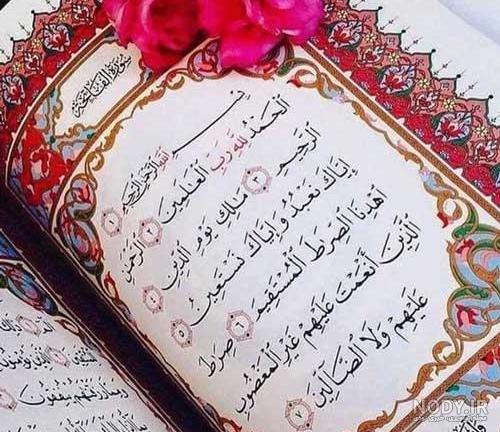 سُورَةُ الْفَاتِحَةِ
بِسْمِ اللَّهِ الرَّحْمَٰنِ الرَّحِيمِ ١
الْحَمْدُ لِلَّهِ رَبِّ الْعَالَمِينَ ٢ الرَّحْمَٰنِ
الرَّحِيمِ ٣ مَالِكِ يَوْمِ الدِّينِ ٤
إِيَّاكَ نَعْبُدُ وَإِيَّاكَ نَسْتَعِينُ ٥
اهْدِنَا الصِّرَاطَ الْمُسْتَقِيمَ ٦ صِرَاطَ
الَّذِينَ أَنْعَمْتَ عَلَيْهِمْ غَيْرِ الْمَغْضُوبِ
عَلَيْهِمْ وَلَا الضَّالِّينَ ٧
NODY.IR